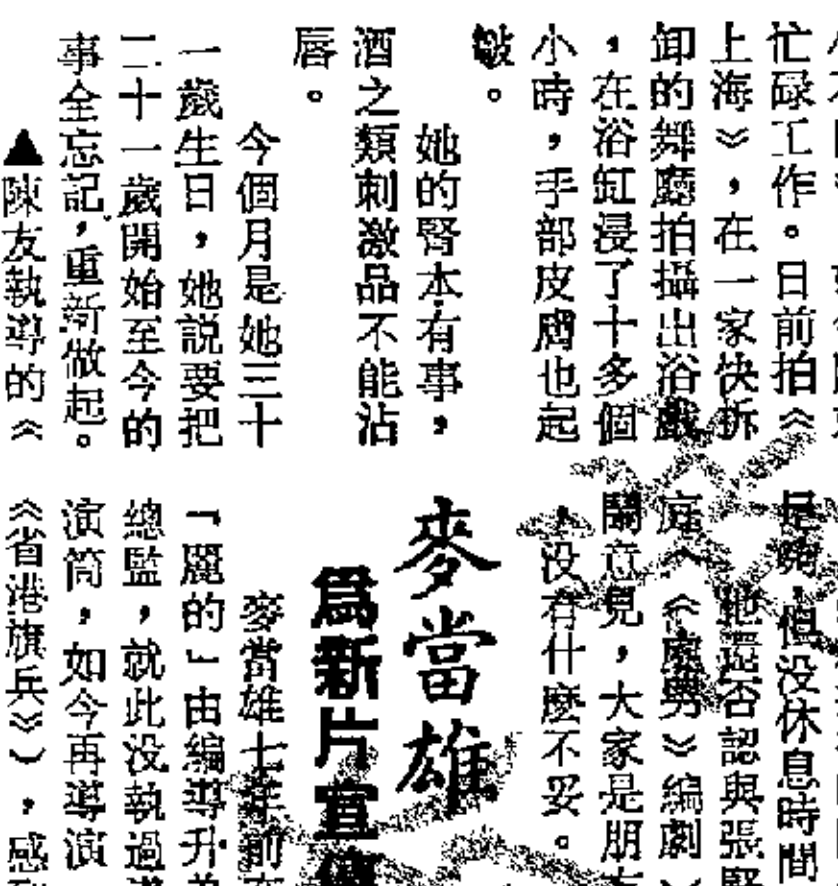 忙碌工作。日前拍《
上海》，在一家快拆
卸的舞廳拍攝出浴戲
，在浴缸浸了十多個
小時，手部皮膚也起
皺。
她的腎本有事，
酒之類刺激品不能沾
唇。
今個月是她三十
一歲生日，她説要把
二十一歲開始至今的
事全忘記，重新做起。
▲陳友執導的《
是晚，但没休息時間
她還否認與張堅
庭（《處男》編劇）
鬧意見，大家是朋友
，没有什麼不妥。
麥當雄
爲新片宣傳
麥當雄七年前
「麗的」由編導升
總監，就此没執過
演筒，如今再導演
《省港旗兵》），感